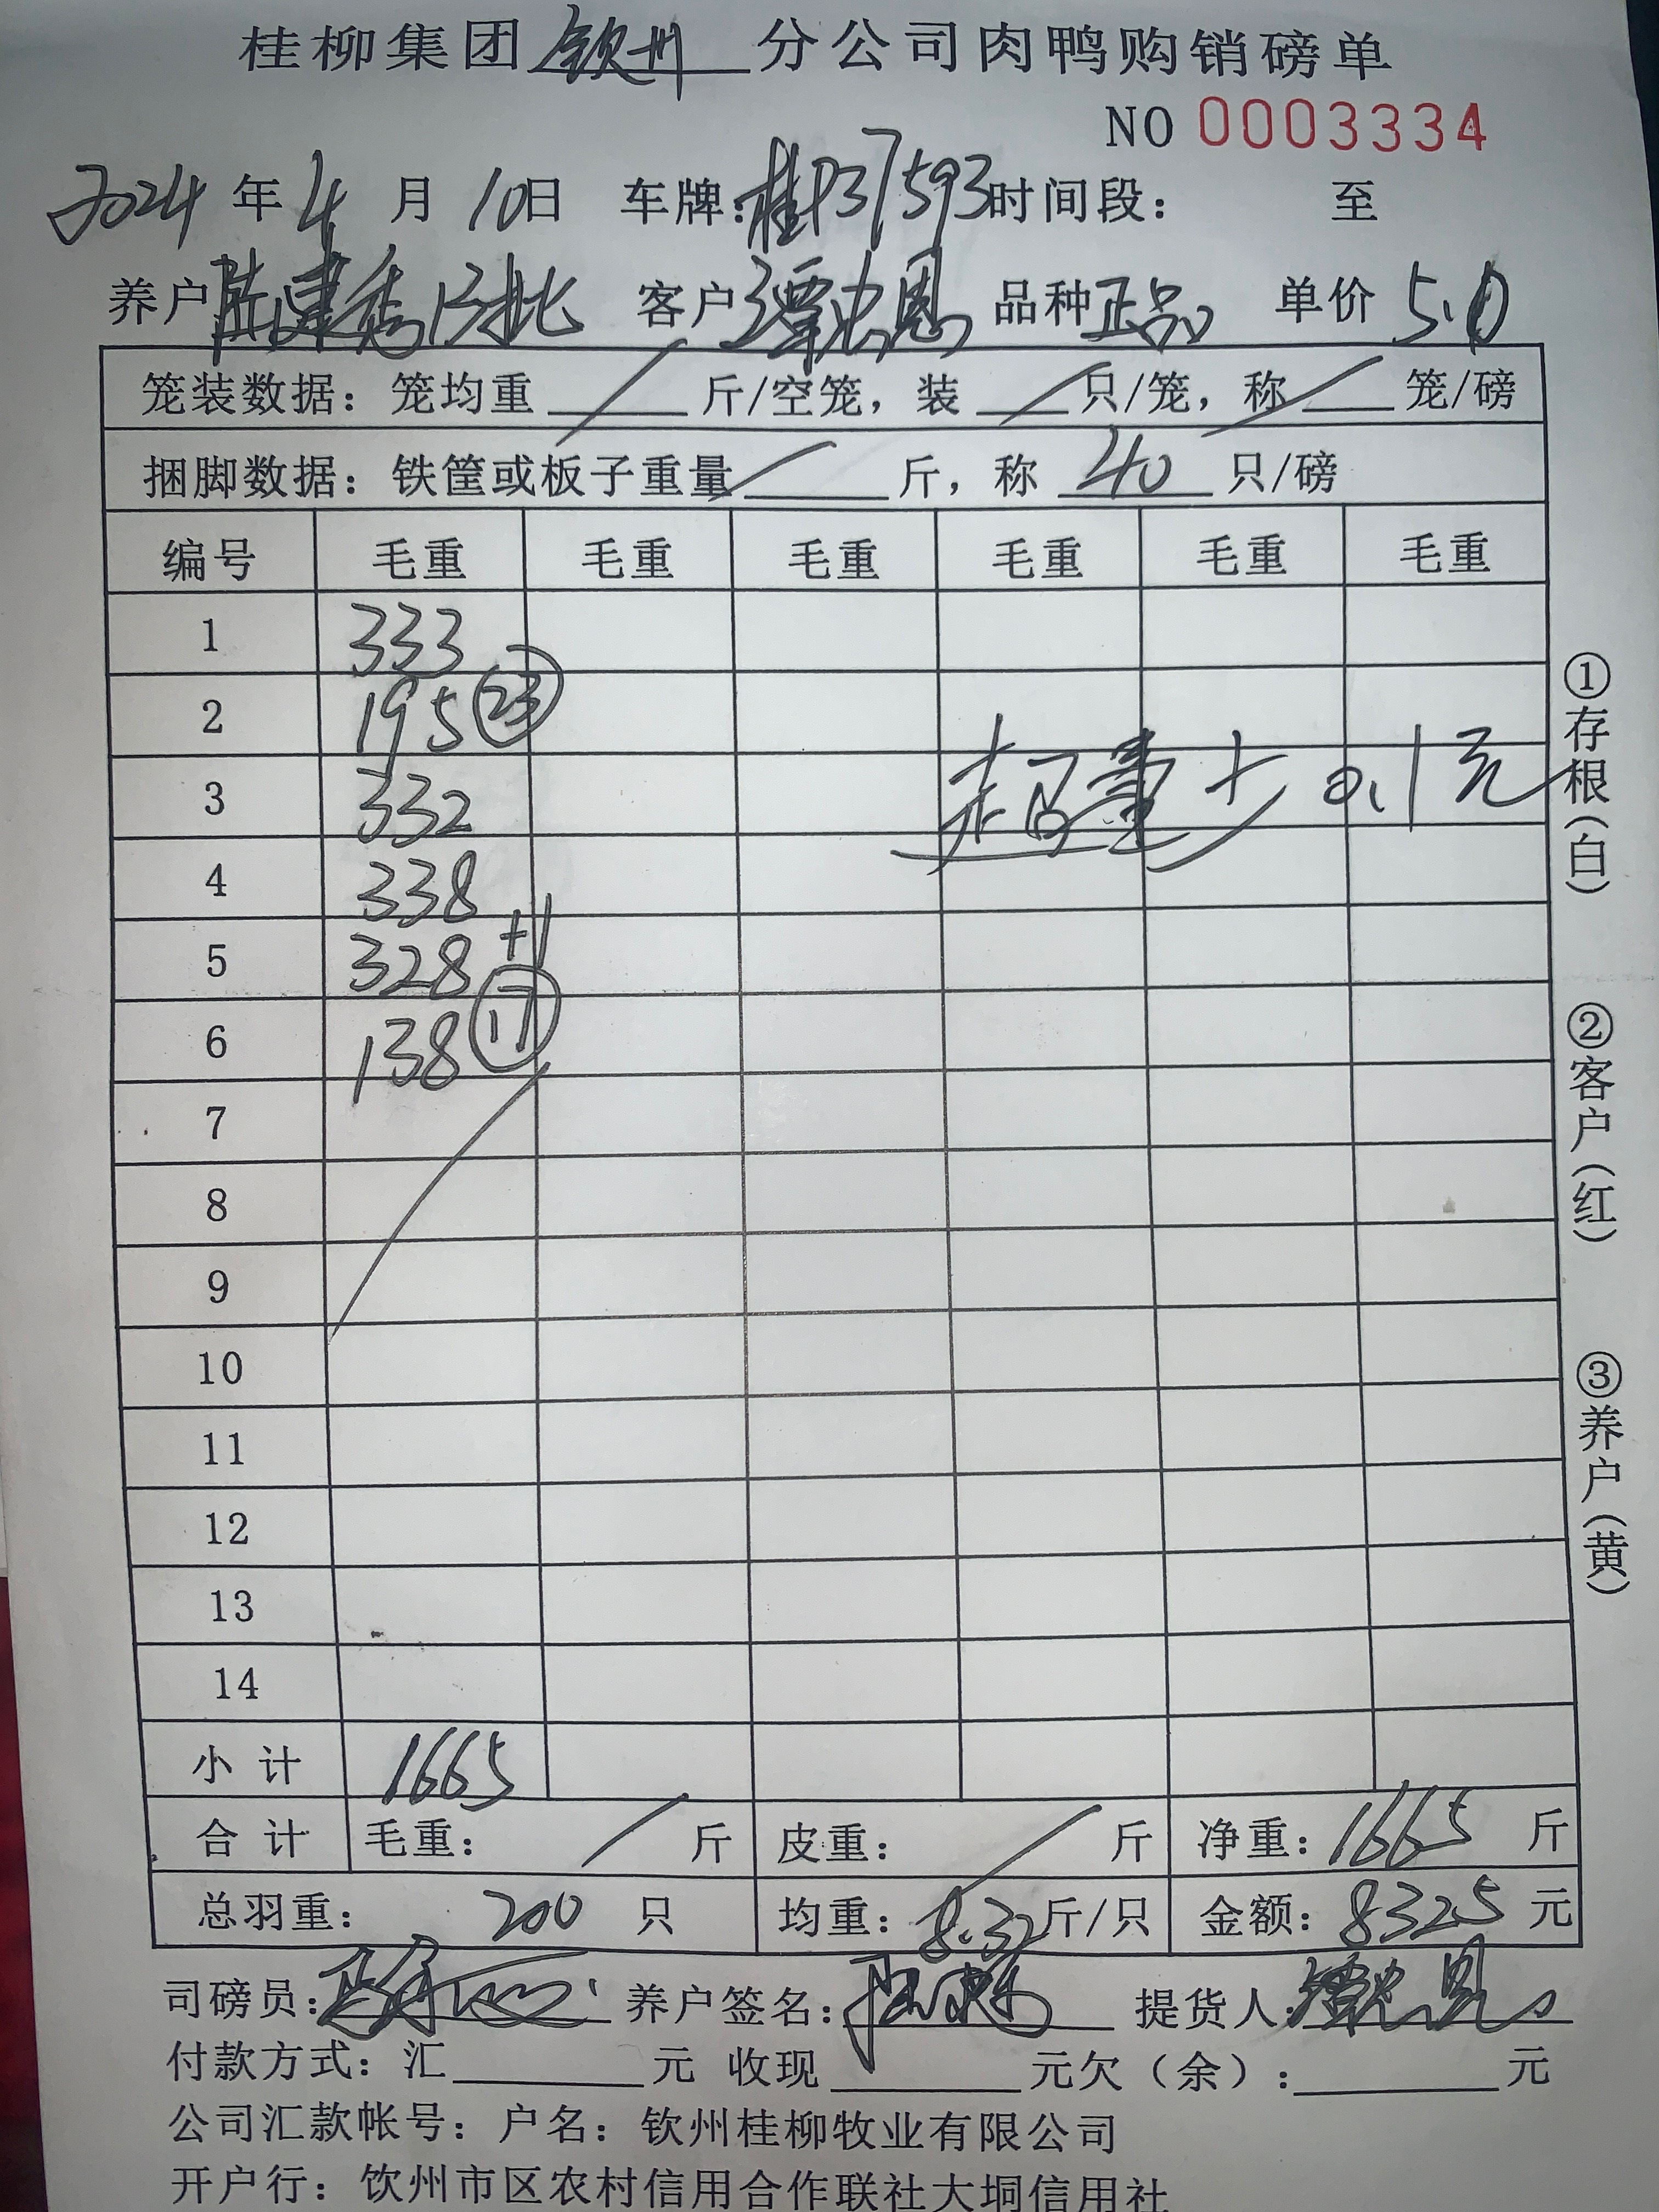 桂柳集团 钦州 分公司肉鸭购销磅单
NO 0003334
2024 年 4 月 10日 车牌：桂P37593 时间段： 至
养户 陈建秀13批 客户 谭忠恩 品种 正品 单价 5.0
笼装数据：笼均重 / 斤/空笼，装 / 只/笼，称 / 笼/磅
捆脚数据：铁筐或板子重量 / 斤，称 40 只/磅
编号 毛重 毛重 毛重 毛重 毛重 毛重
1 333
2 195 23
3 332 超重+0.1元
4 338
5 328 +1
6 138 17
7
8
9
10
11
12
13
14
小计 1665
合计 毛重： / 斤 皮重： / 斤 净重：1665 斤
总羽重： 200 只 均重：8.32斤/只 金额：8325 元
司磅员： 养户签名： 提货人：谭忠恩
付款方式：汇 元 收现 元欠（余）： 元
公司汇款帐号：户名：钦州桂柳牧业有限公司
开户行：钦州市区农村信用合作联社大垌信用社
①存根（白）
②客户（红）
③养户（黄）